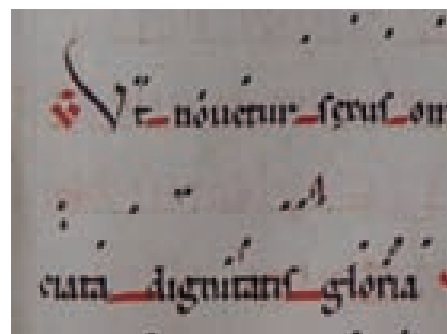 ℣ Vt nouetur om
ciata dignitatis gloria